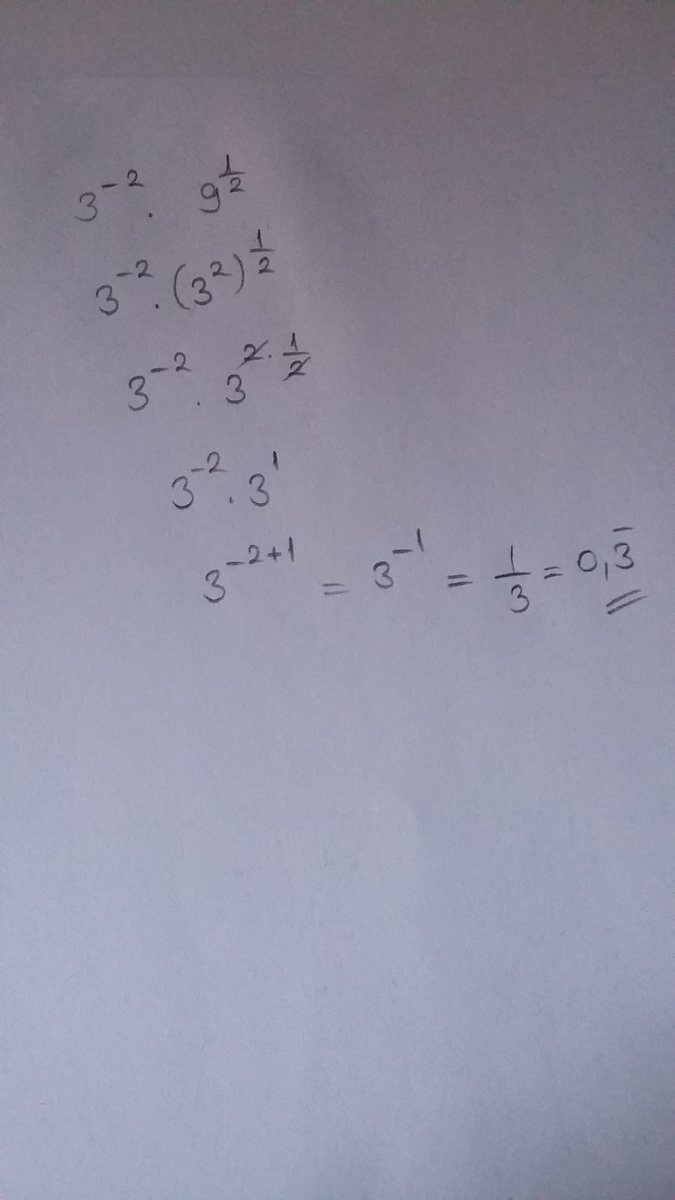 3⁻² . 9^½
3⁻² . (3²)^½
3⁻² . 3^(2 . ½)
3⁻² . 3¹
3⁻²⁺¹ = 3⁻¹ = 1/3 = 0,3̅